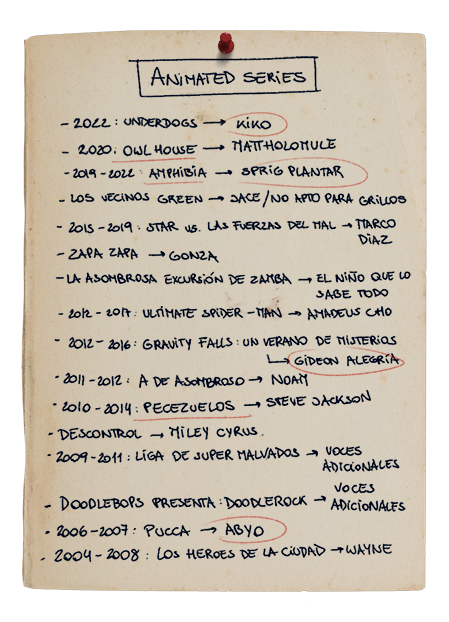 ANIMATED SERIES
- 2022: UNDERDOGS → KIKO
- 2020: OWL HOUSE → MATTHOLOMULE
- 2019-2022: AMPHIBIA → SPRIG PLANTAR
- LOS VECINOS GREEN → JACE/NO APTO PARA GRILLOS
- 2015-2019: STAR VS. LAS FUERZAS DEL MAL → MARCO
DIAZ
- ZAPA ZAPA → GONZA
- LA ASOMBROSA EXCURSIÓN DE ZAMBA → EL NIÑO QUE LO
SABE TODO
- 2012-2017: ULTIMATE SPIDER-MAN → AMADEUS CHO
- 2012-2016: GRAVITY FALLS: UN VERANO DE MISTERIOS
→ GIDEON ALEGRÍA
- 2011-2012: A DE ASOMBROSO → NOAM
- 2010-2014: PECEZUELOS → STEVE JACKSON
- DESCONTROL → MILEY CYRUS.
- 2009-2011: LIGA DE SUPER MALVADOS → VOCES
ADICIONALES
- DOODLEBOPS PRESENTA: DOODLEROCK → VOCES
ADICIONALES
- 2006-2007: PUCCA → ABYO
- 2004-2008: LOS HEROES DE LA CIUDAD → WAYNE